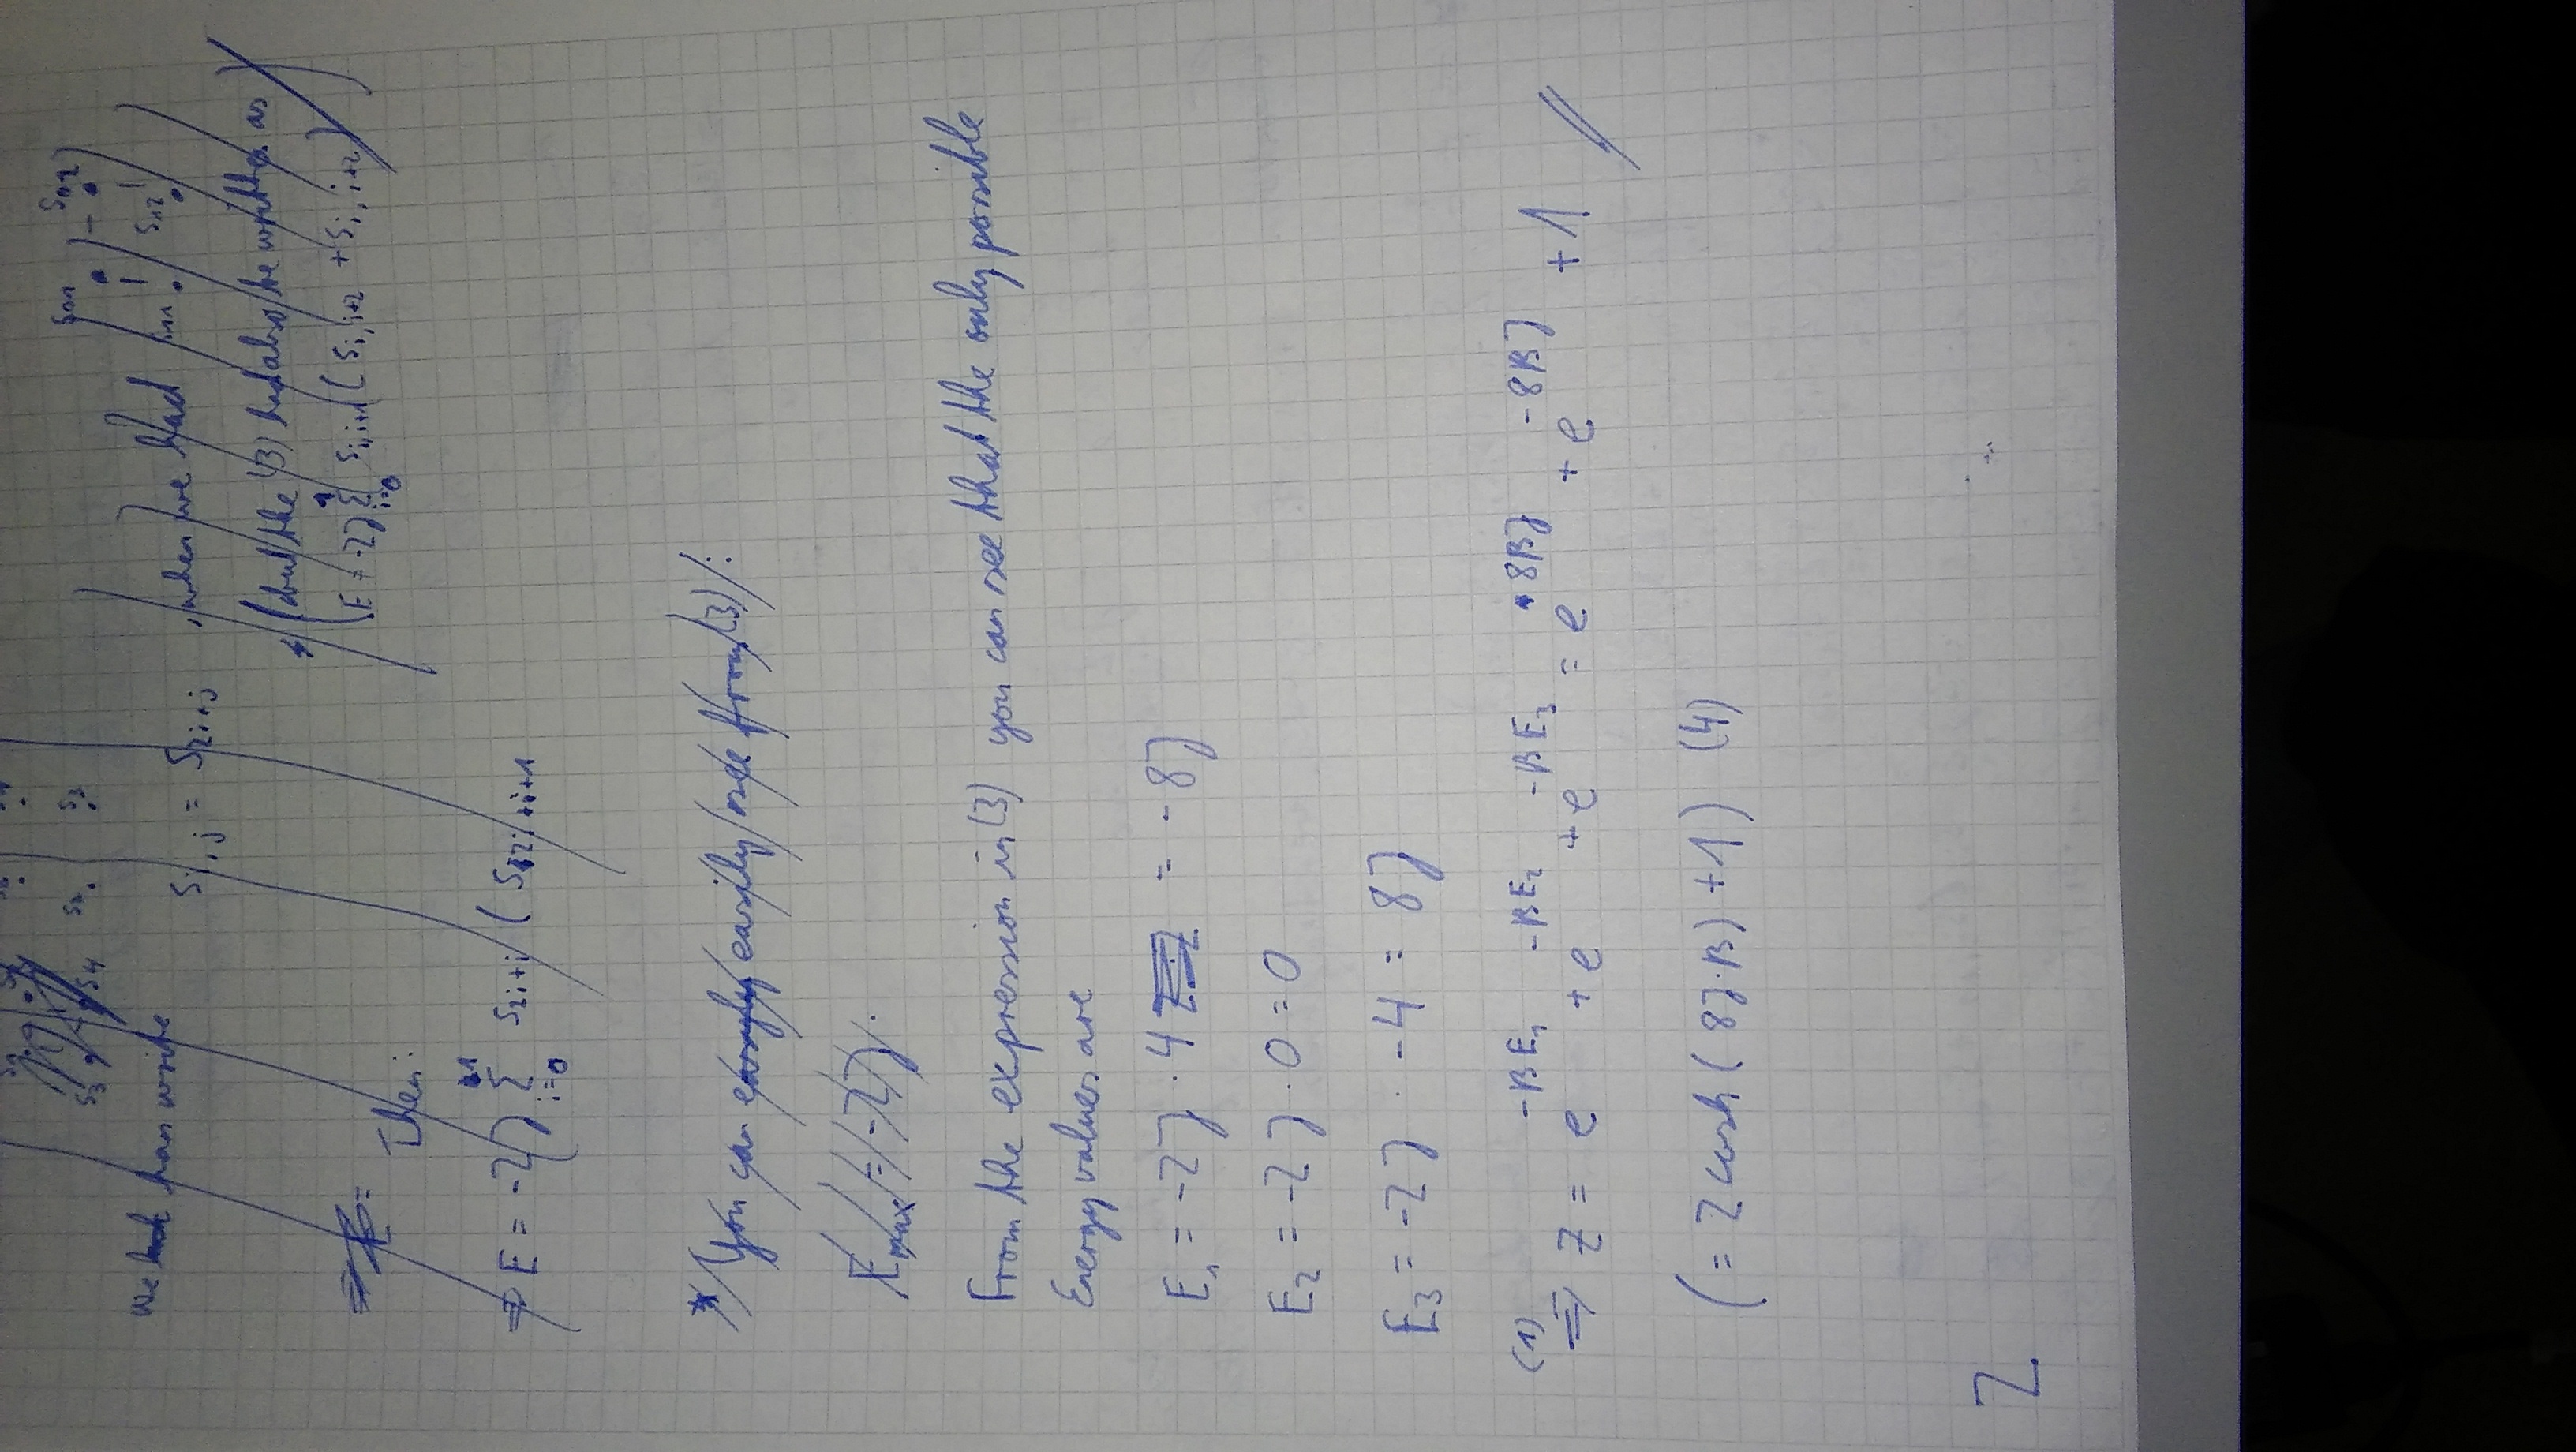 s3 s4 s2 s3
we can write s_{i,j} = s_{2i+j} , when we had s01 s02
s11 s12
(but the (3) had also be written as
E = -2J Σ_{i=0}^{1} s_{i,i+1} ( s_{i,i+2} + s_{i,i+2} ) )
Then:
⇒ E = -2J Σ_{i=0}^{1} s_{2i+i} ( s_{2i+i+1}
* You can easily see from (3) :
E_max = -2J.
From the expression in (3) you can see that the only possible
Energy values are
E₁ = -2J · 4 = -8J
E₂ = -2J · 0 = 0
E₃ = -2J · -4 = 8J
(1) ⇒ Z = e^{-βE₁} + e^{-βE₂} + e^{-βE₃} = e^{8βJ} + e^{-8βJ} + 1 //
( = 2 cosh( 8J·β) + 1 ) (4)
2